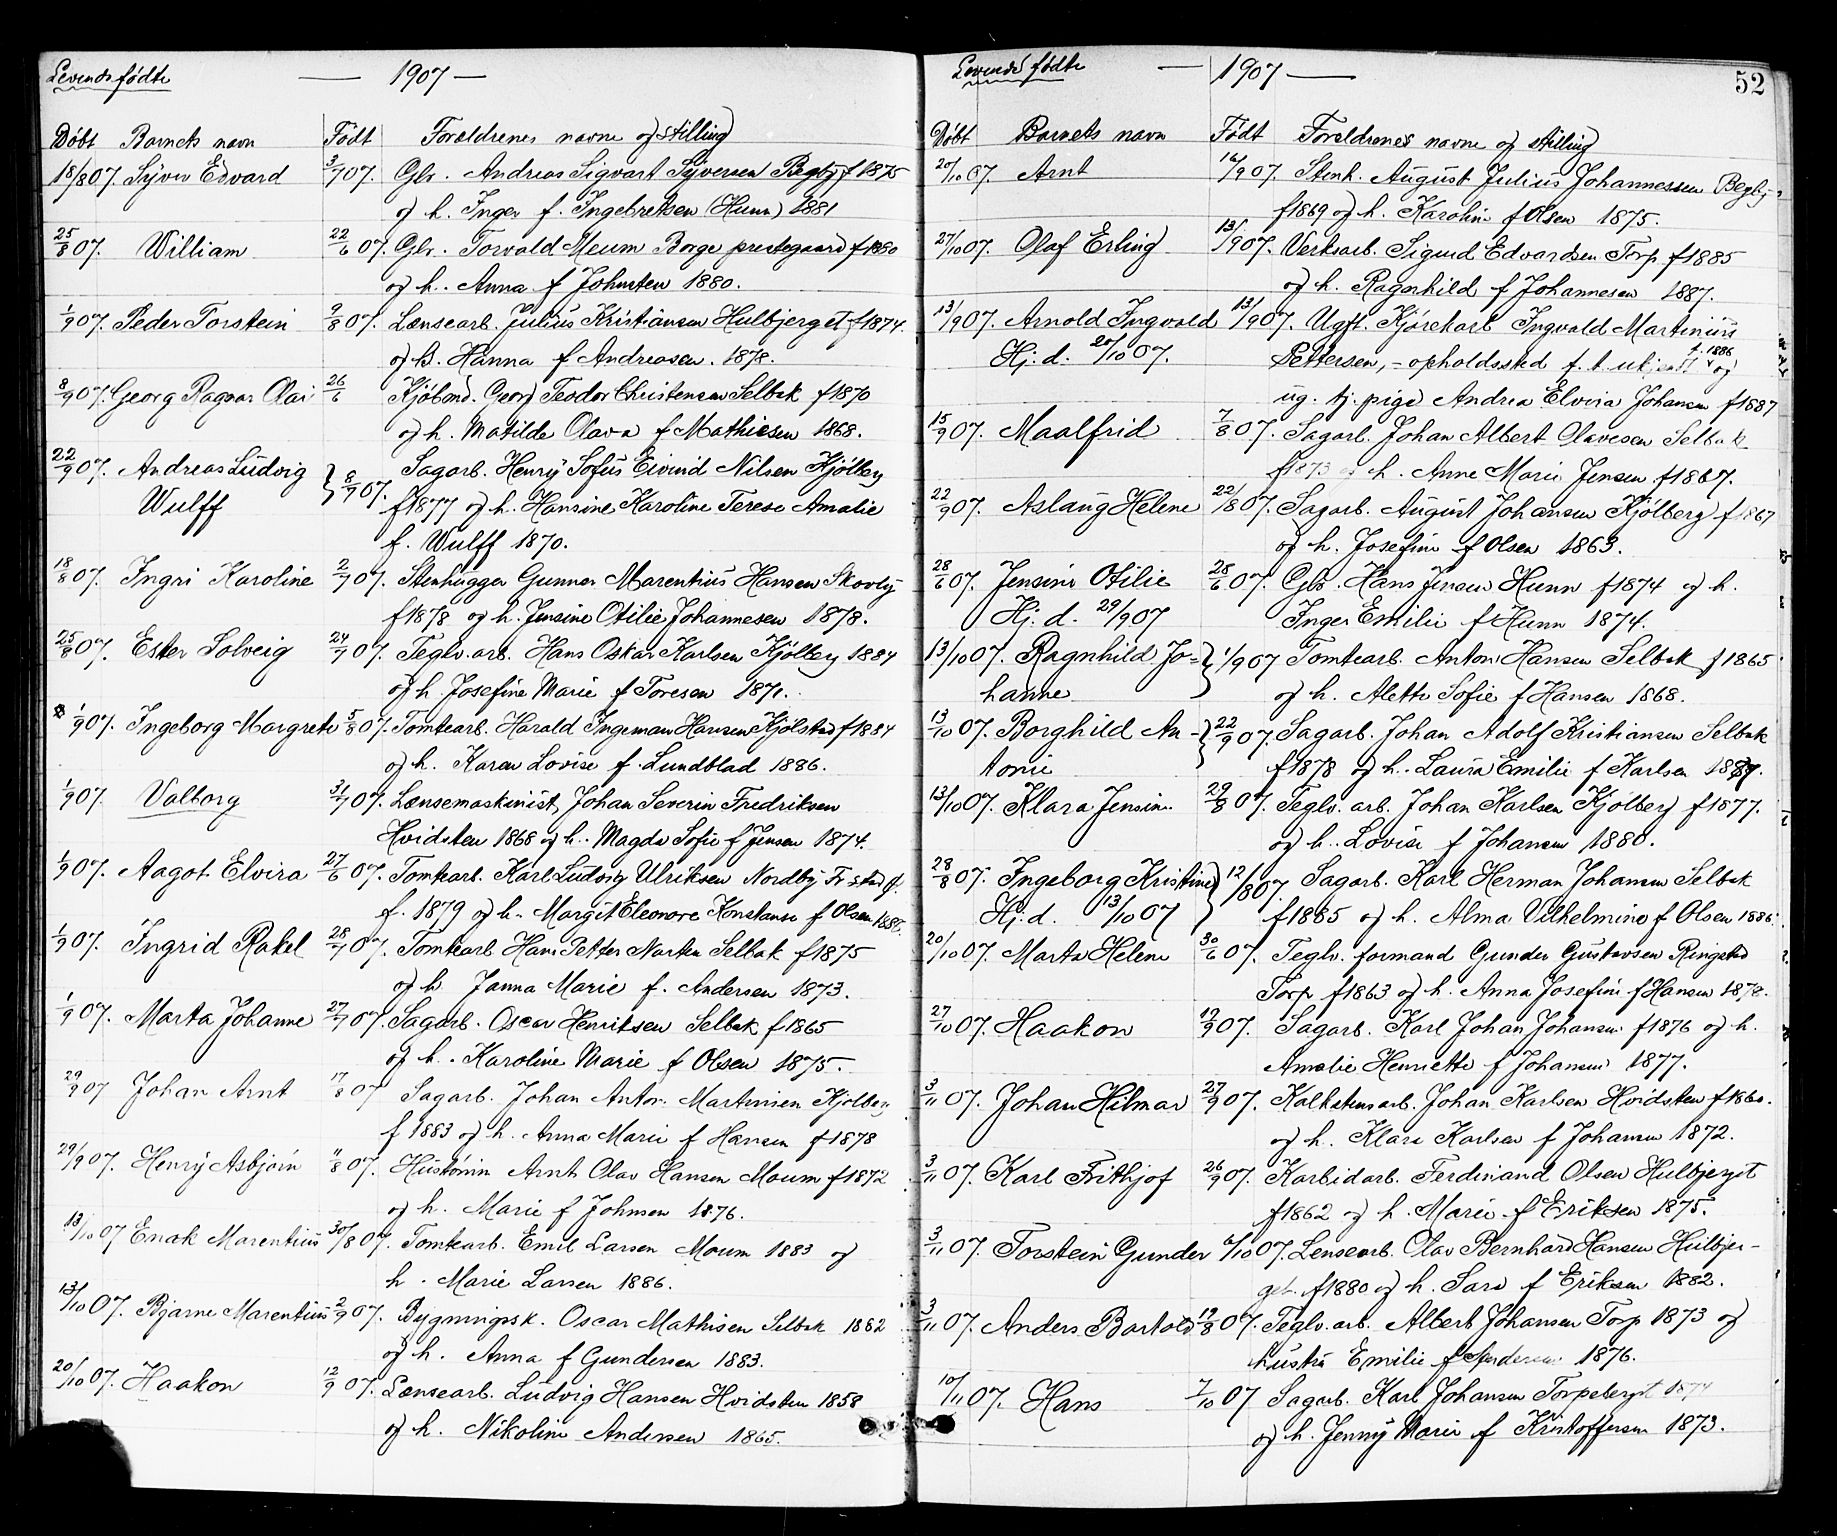 Levende fødte — 1907 —
Døbt Barnets navn Født Forældrenes navne og stilling
18/8 07. Syver Edvard 3/7 07. Gbr. Andreas Sigvart Syversen Begby f 1875
og h. Inger f. Ingebretsen (Hunn) 1881
25/8 07. William 22/6 07. Gbr. Torvald Meum Borge prestegaard f 1880
og h. Anna f Johnsten 1880.
1/9 07. Peder Torstein 9/8 07. Lænsearb. Julius Kristiansen Hulbjerget f 1874.
og h. Hanna f Andreasen. 1878.
8/9 07. Georg Ragnar Olai 26/6 Kjøbmd. Georg Teodor Christensen Selbak f 1870
og h. Matilde Olava f Mathiesen 1868.
22/9 07. Andreas Ludvig } 8/7 07. Sagarb. Henry Sofus Eivind Nilsen Kjølberg
Wulff f 1877 og h. Hansine Karoline Terese Amalie
f. Wulff 1870.
18/8 07. Ingri Karoline 2/7 07. Stenhugger Gunnar Marentius Hansen Skovby
f 1878 og h. Jensine Otilie Johannesen 1878.
25/8 07. Ester Solveig 24/7 07. Teglv. arb. Hans Oskar Karlsen Kjølberg 1884
og h. Josefine Marie f Toresen 1871.
1/9 07. Ingeborg Margrete 5/8 07. Tomtearb. Harald Ingeman Hansen Kjølstad f 1884
og h. Karen Lovise f. Lundblad 1886.
1/9 07. Valborg 31/7 07. Lænsemaskinist Johan Severin Fredriksen
Hvidsten 1868 og h. Magda Sofie f Jensen 1874.
1/9 07. Aagot Elvira 27/6 07. Tomtearb. Karl Ludvig Ulriksen Nordby Fr.stad
f. 1879 og h. Margit Eleonore Konstanse f Olsen 1880.
1/9 07. Ingrid Rakel 28/7 07. Tomtearb Hans Petter Narten Selbak f 1875
og h Janna Marie f. Andersen 1873.
1/9 07. Marta Johanne 27/7 07. Sagarb. Oscar Henriksen Selbak f 1865
og h. Karoline Marie f Olsen 1875.
29/9 07 Johan Arnt 17/8 07 Sagarb. Johan Anton Martinsen Kjølberg
f 1883 og h. Anna Marie f Hansen f 1878
29/9 07. Henry Asbjørn 11/8 07. Hustømm Arnt Olav Hansen Moum f 1872
og h. Marie f Johnsen 1876.
13/10 07 Enok Marentius 30/8 07. Tomtearb. Emil Larsen Moum 1883 og
h. Marie Larsen 1886.
13/10 07. Bjarne Marentius 2/9 07. Bygningssk. Oscar Mathisen Selbak 1882
og h. Anna f Gundersen 1883.
20/10 07. Haakon 12/9 07. Lænsearb. Ludvig Hansen Hvidsten 1858
og h. Nikoline Andersen 1865.
Levende fødte — 1907 — 52
Døbt Barnets navn Født Forældrenes navne og stilling
20/10 07. Arnt 16/9 07. Stenh. August Julius Johannessen Begby
f 1869 og h. Karoline f Olsen 1875.
27/10 07. Olaf Erling 13/9 07. Verksarb. Sigurd Edvardsen Torp f 1885
og h. Ragnhild f Johannesen 1887.
13/9 07. Arnold Ingvald 13/9 07. Ugft. Kjørekarl Ingvald Martinius
Hj. d. 20/10 07. Pettersen, – opholdssted f. t. ukjendt f. 1886 og
ug. tj. pige Andrea Elvira Johansen f 1887
15/9 07. Maalfrid 7/8 07. Sagarb. Johan Albert Olavesen Selbak
f 1873 og h. Anne Marie Jensen f 1867.
22/9 07. Aslaug Helene 22/8 07. Sagarb. August Johansen Kjølberg f 1867
og h. Josefine f Olsen 1863.
28/6 07. Jensine Otilie 28/6 07. Gbr. Hans Jensen Hunn f 1874 og h.
Hj. d. 29/9 07 Inger Emilie f Hunn 1874.
13/10 07. Ragnhild Jo= } 1/9 07 Tomtearb. Anton Hansen Selbak f 1865
hanne og h. Alette Sofie f Hansen 1868.
13/10 07. Borghild An- } 22/9 07. Sagarb. Johan Adolf Kristiansen Selbak
tonie f 1878 og h. Laura Emilie f Karlsen 1887.
13/10 07. Klara Jensine 29/8 07. Teglv. arb. Johan Karlsen Kjølberg f 1877.
og h. Lovise f Johansen 1880.
28/8 07. Ingeborg Kristine } 12/8 07. Sagarb. Karl Herman Johansen Selbak
Hj. d. 13/10 07 f 1885 og h. Alma Vilhelmine f Olsen 1886.
20/10 07. Marta Helene 30/6 07. Teglv. formand Gunder Gustavsen Ringstad
Torp f 1863 og h. Anna Josefine f Hansen 1878.
27/10 07. Haakon 19/9 07. Sagarb. Karl Johan Johansen f 1876 og h.
Amalie Henriette f Johansen 1877.
3/11 07. Johan Hilmar 27/9 07. Kalkstensarb. Johan Karlsen Hvidsten f 1860.
og h. Klara Karlsen f Johansen 1872.
3/11 07. Karl Frithjof 26/9 07. Karbidarb. Ferdinand Olsen Hulbjerget
f 1862 og h. Marie f Eriksen 1875.
3/11 07. Torstein Gunder 6/10 07. Lensearb. Olav Bernhard Hansen Hulbjer-
get. f 1880 og h. Sara f Eriksen 1882.
3/11 07. Anders Bartold 19/8 07. Teglv. arb. Albert Johansen Torp 1873 og
hustru Emilie f 1876.
10/11 07. Hans 7/10 07 Sagarb. Karl Johansen Torpeberget 1874
og h. Jenny Marie f Kristoffersen 1873.